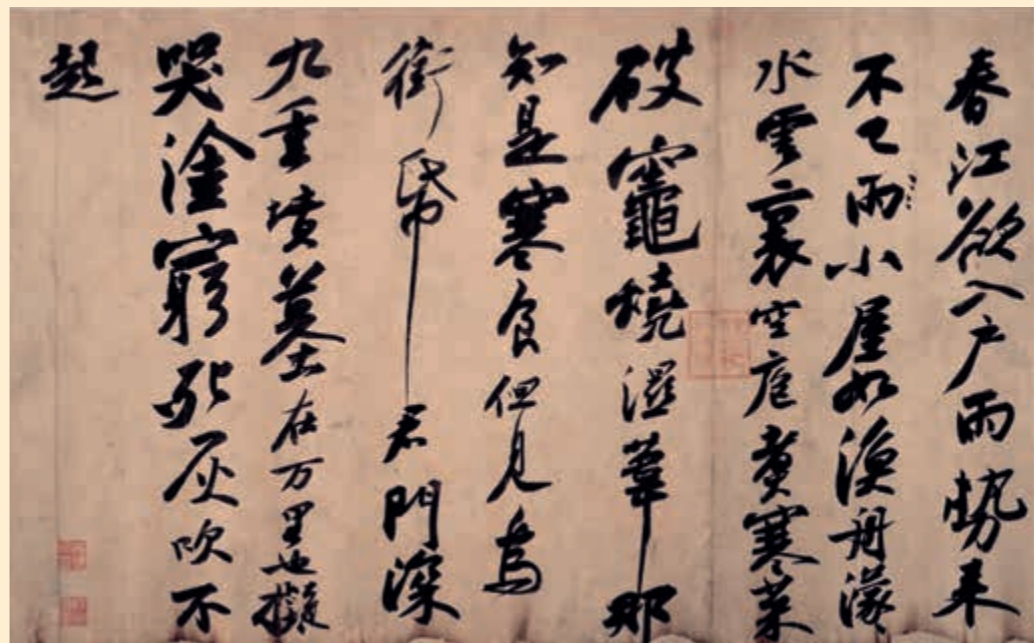 春江欲入戶雨勢来
不已雨小屋如漁舟濛々
水雲裏空庖煑寒菜
破竈燒濕葦那
知是寒食但見烏
銜帋君門深
九重墳墓在万里也擬
哭塗窮死灰吹不
起